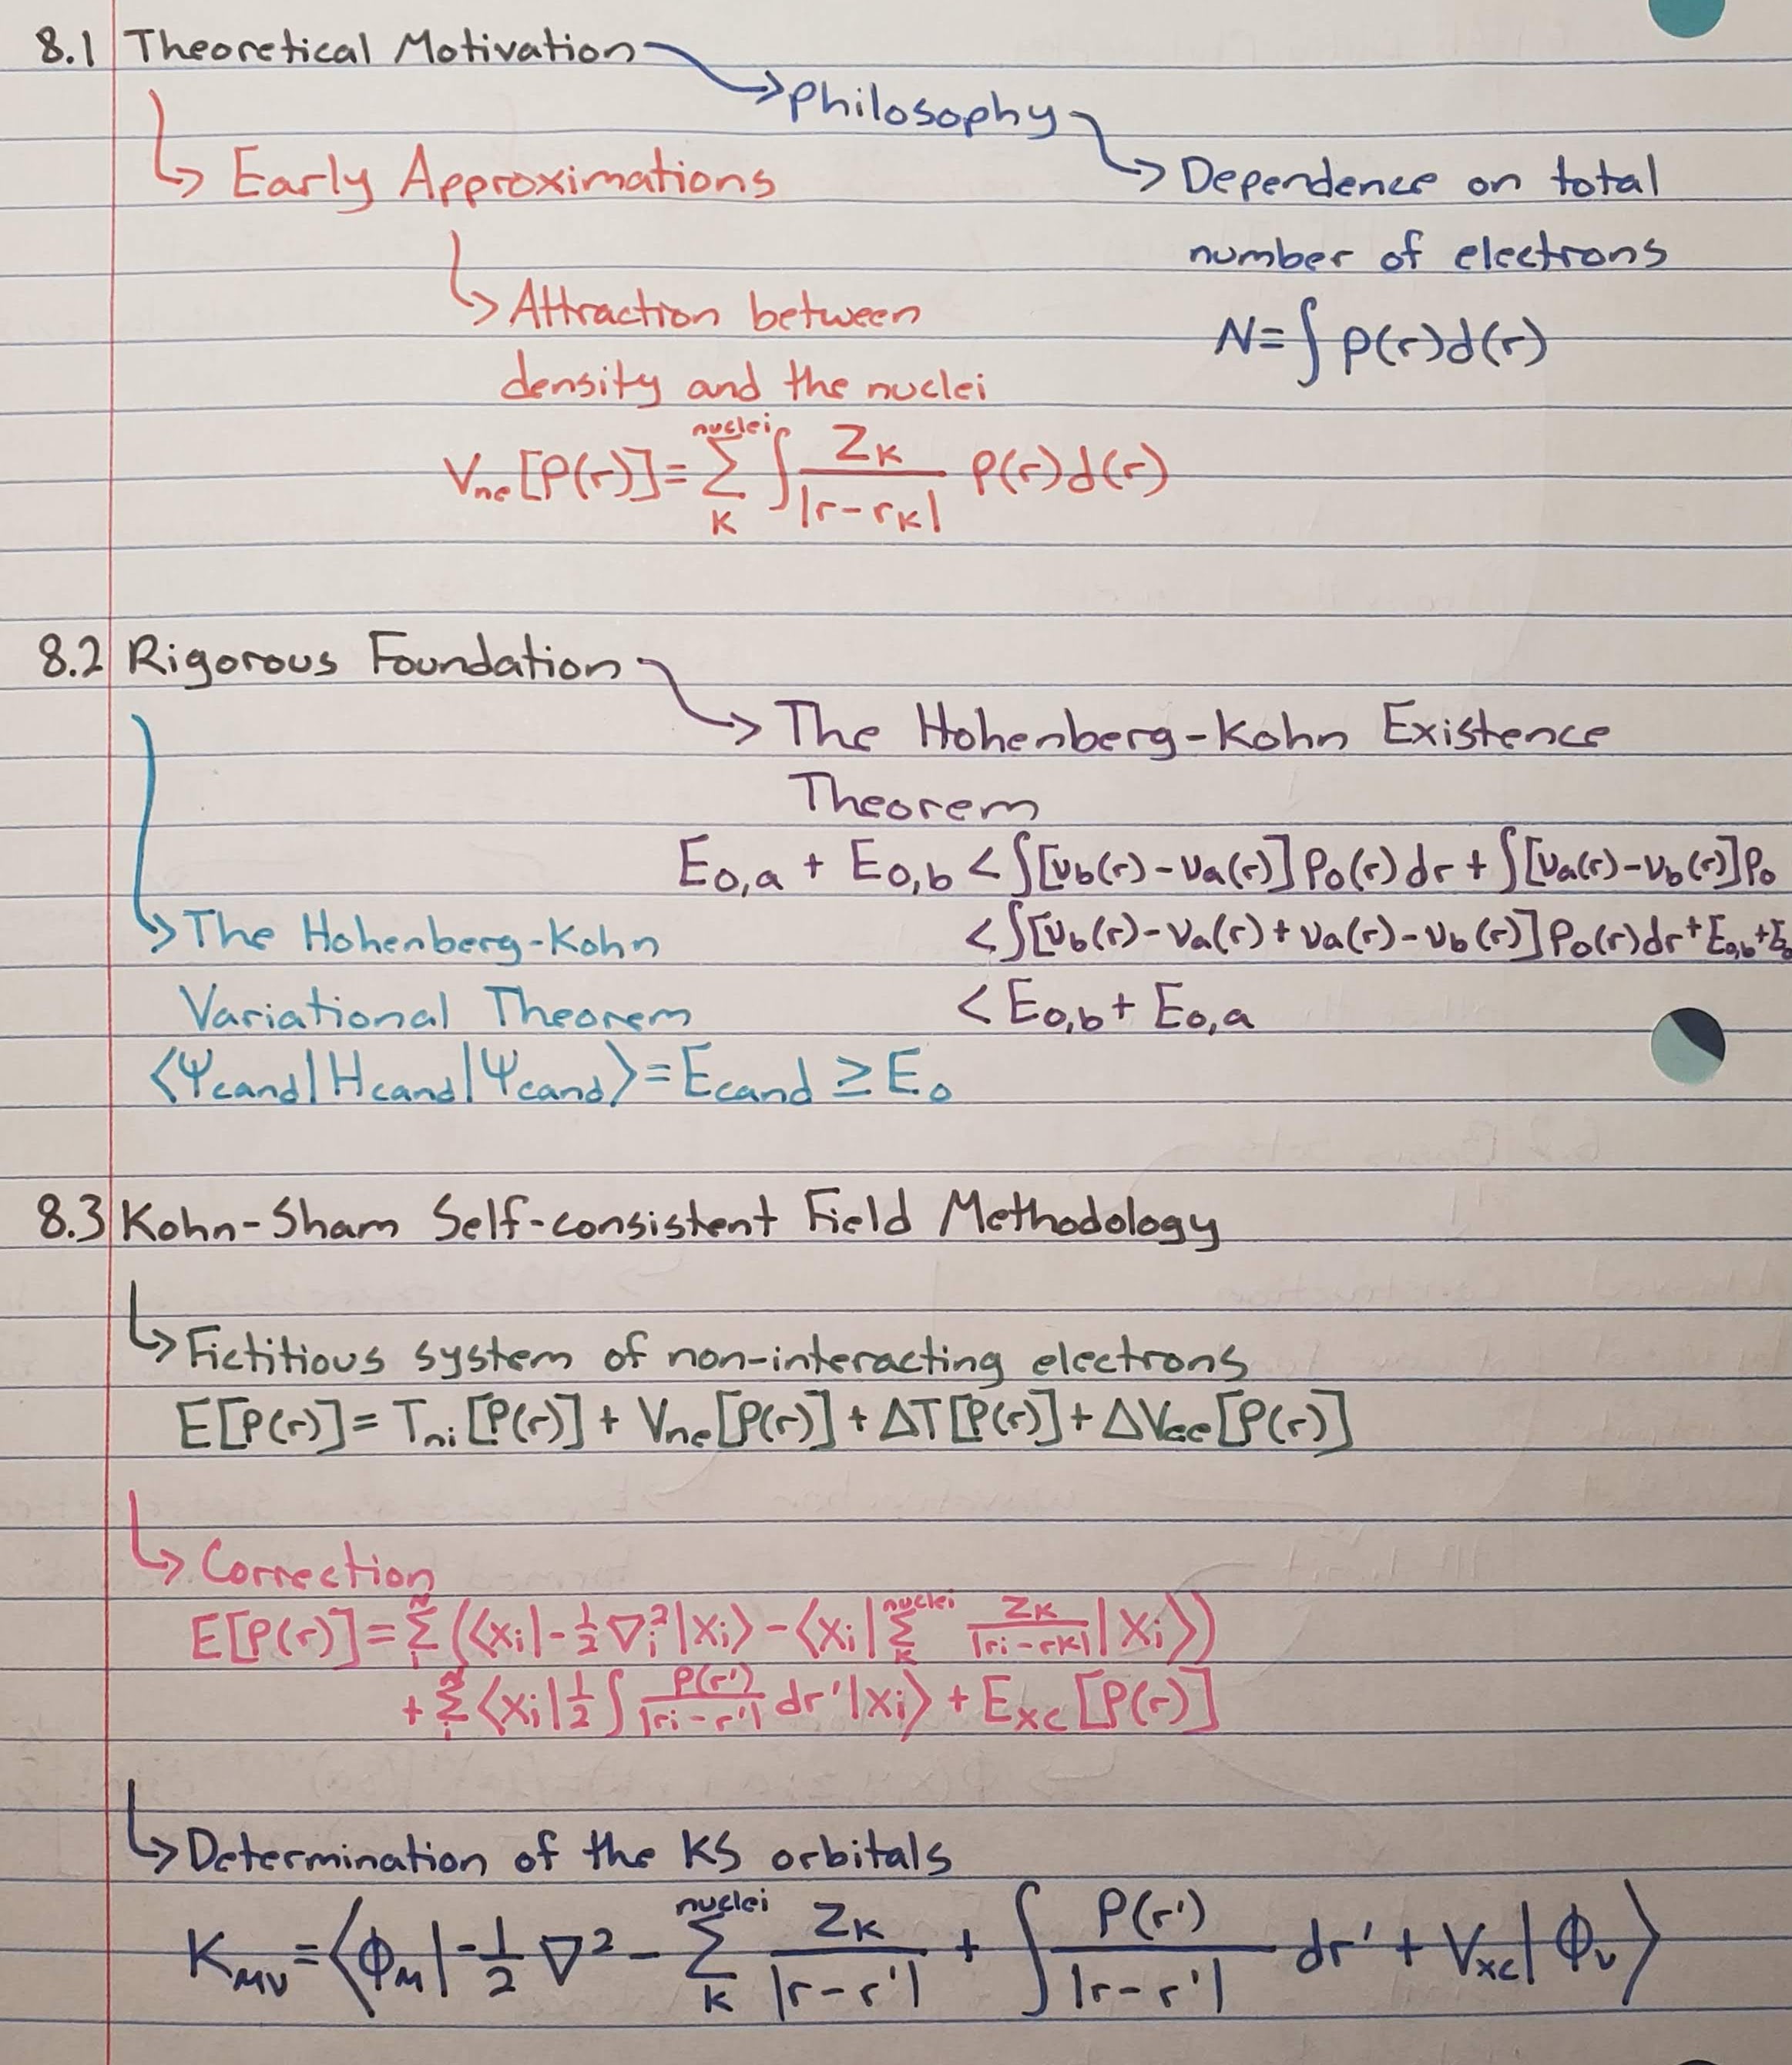 8.1 Theoretical Motivation
Philosophy
Dependence on total
number of electrons
N=∫ρ(r)d(r)
Early Approximations
Attraction between
density and the nuclei
V_ne[ρ(r)]=∑_K^nuclei ∫ Z_K/|r-r_K| ρ(r)d(r)
8.2 Rigorous Foundation
The Hohenberg-Kohn Existence
Theorem
E_0,a + E_0,b < ∫[v_b(r)-v_a(r)]ρ_0(r)dr + ∫[v_a(r)-v_b(r)]ρ_0
< ∫[v_b(r)-v_a(r)+v_a(r)-v_b(r)]ρ_0(r)dr + E_0,b + E_0
< E_0,b + E_0,a
The Hohenberg-Kohn
Variational Theorem
⟨Ψ_cand|H_cand|Ψ_cand⟩=E_cand ≥ E_0
8.3 Kohn-Sham Self-consistent Field Methodology
Fictitious system of non-interacting electrons
E[ρ(r)]= T_ni[ρ(r)] + V_ne[ρ(r)] + ΔT[ρ(r)] + ΔV_ee[ρ(r)]
Correction
E[ρ(r)]=∑_i^N (⟨χ_i|-1/2 ∇_i^2|χ_i⟩ - ⟨χ_i|∑_K^nuclei Z_K/|r_i-r_K| |χ_i⟩)
+ ∑_i^N ⟨χ_i|1/2 ∫ ρ(r')/|r_i-r'| dr'|χ_i⟩ + E_xc[ρ(r)]
Determination of the KS orbitals
K_μν=⟨ϕ_μ|-1/2 ∇^2 - ∑_K^nuclei Z_K/|r-r'| + ∫ ρ(r')/|r-r'| dr' + V_xc|ϕ_ν⟩